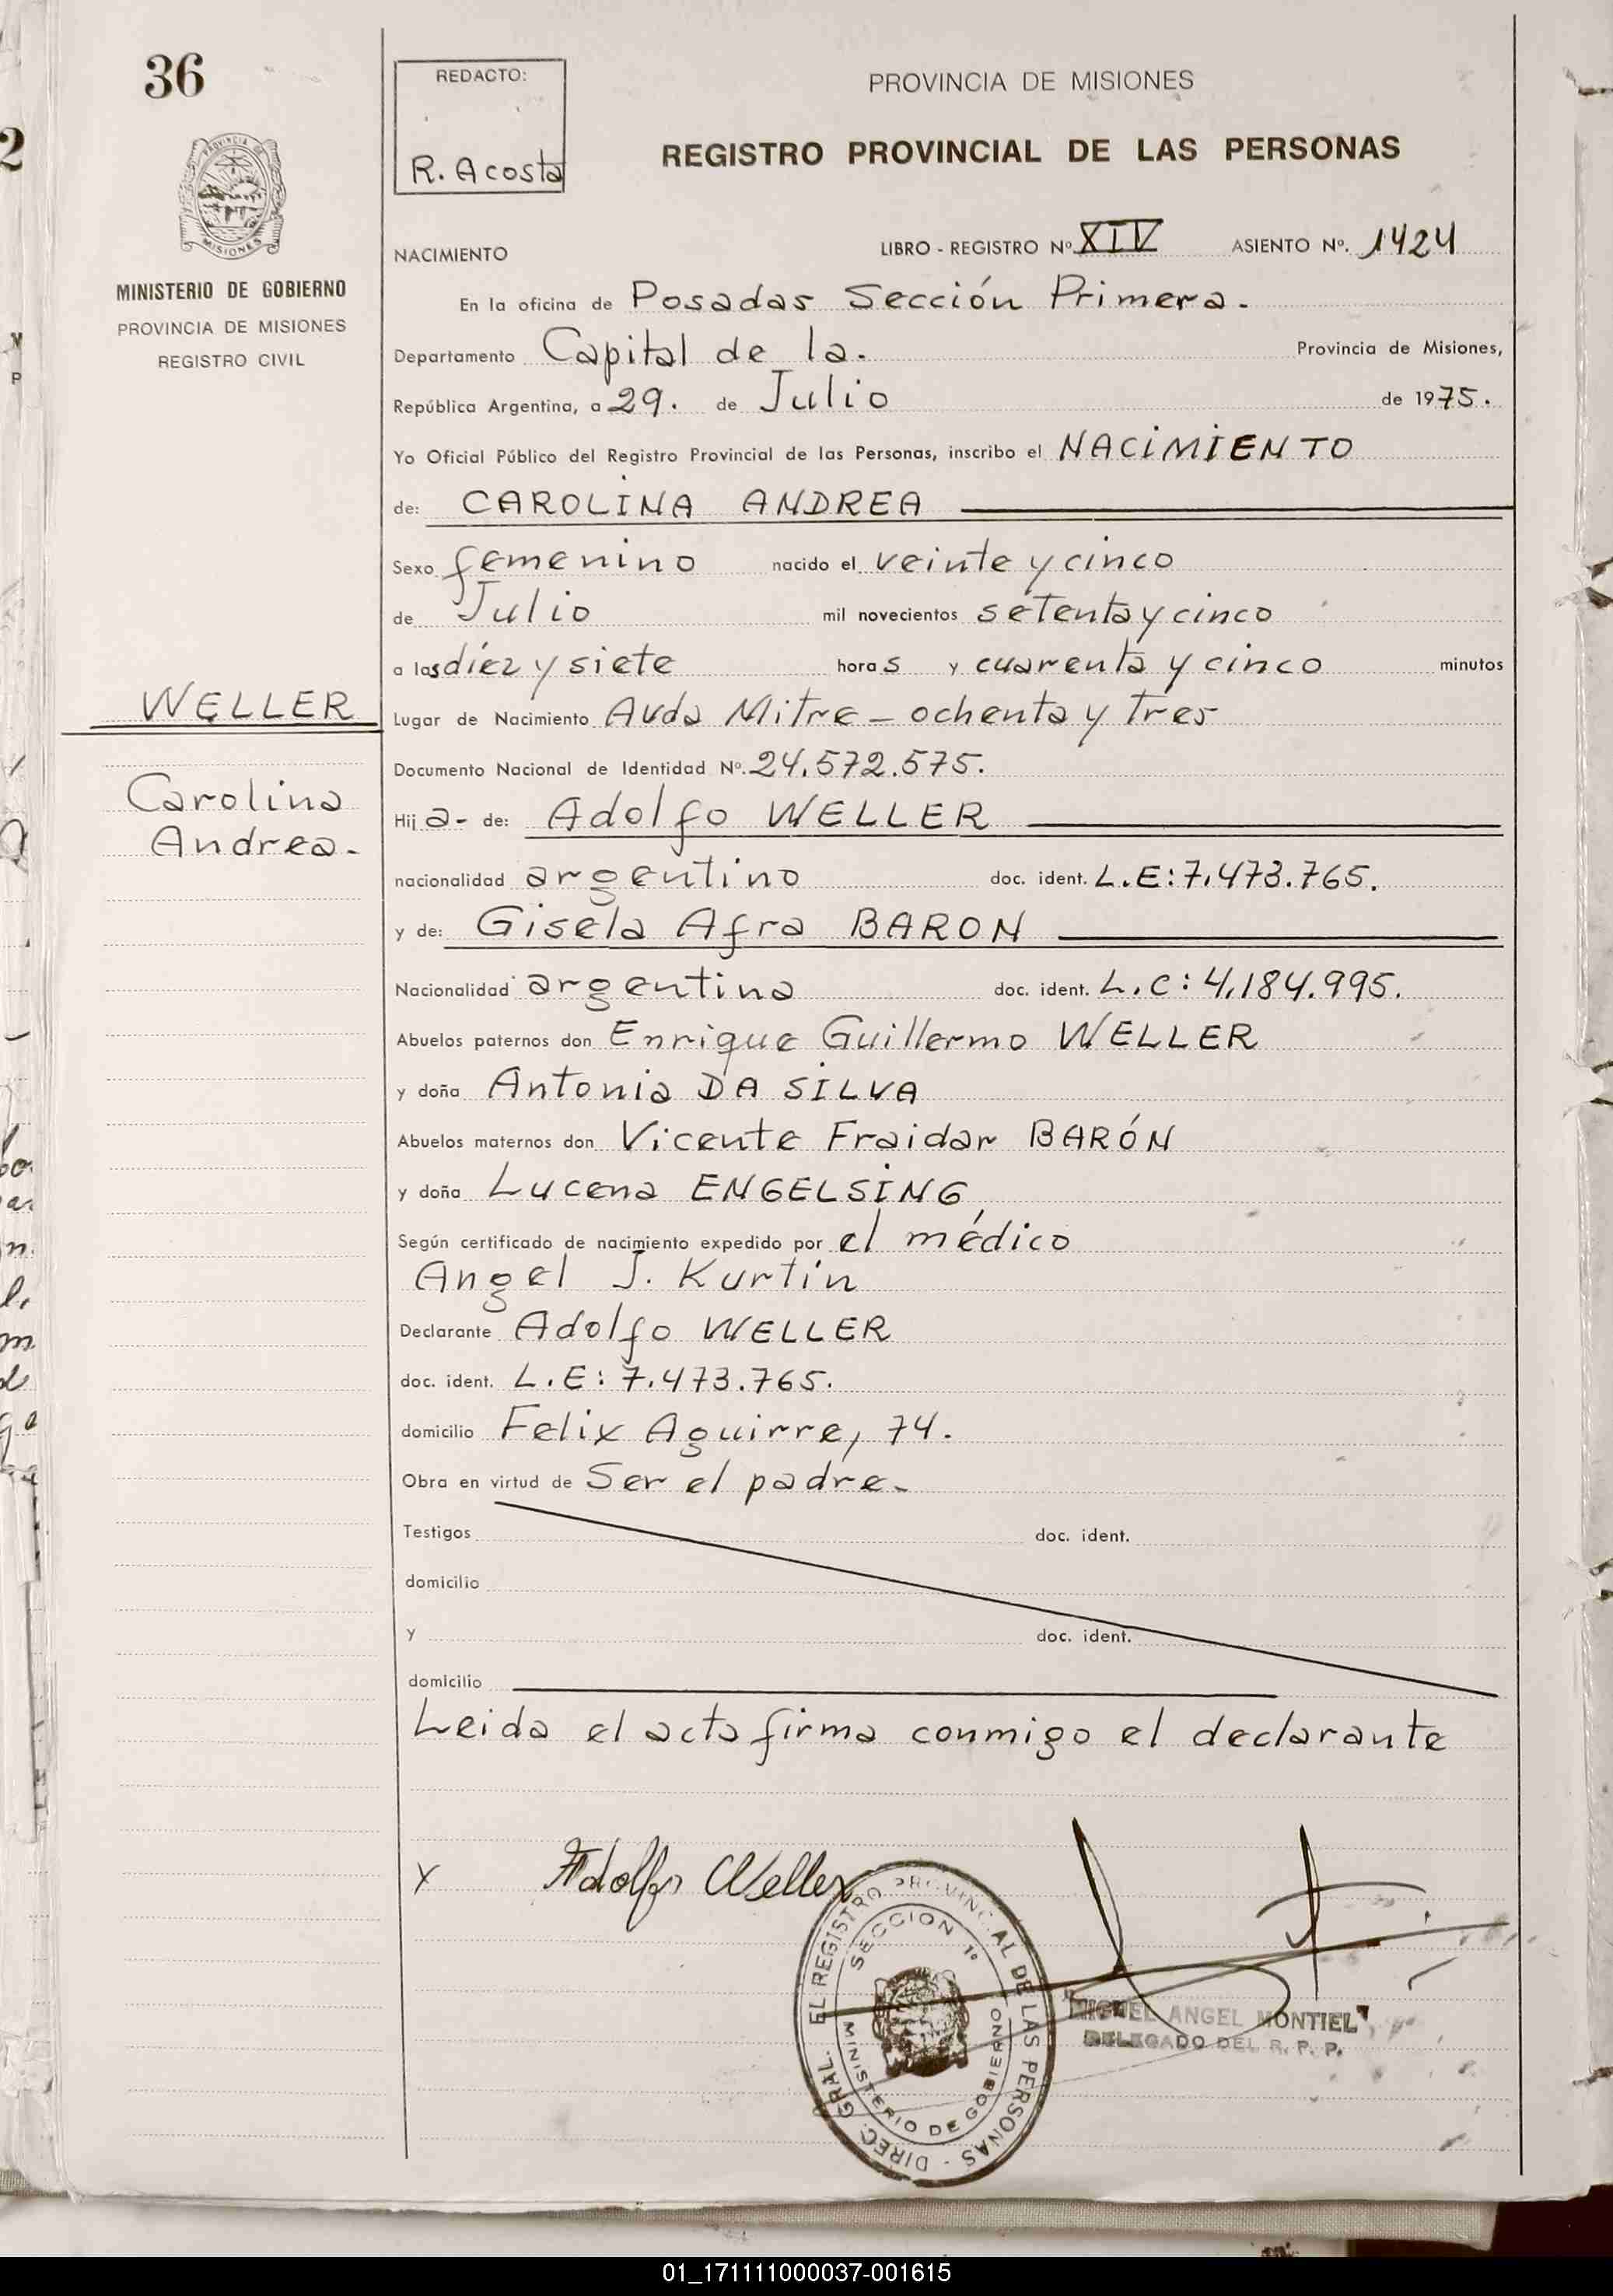 36
REDACTO:
R. Acosta
PROVINCIA DE MISIONES
REGISTRO PROVINCIAL DE LAS PERSONAS
PROVINCIA DE
MISIONES
MINISTERIO DE GOBIERNO
PROVINCIA DE MISIONES
REGISTRO CIVIL
NACIMIENTO
LIBRO - REGISTRO Nº XIV ASIENTO Nº. 1424
En la oficina de Posadas Sección Primera.
Departamento Capital de la. Provincia de Misiones,
República Argentina, a 29. de Julio de 1975.
Yo Oficial Público del Registro Provincial de las Personas, inscribo el NACIMIENTO
de: CAROLINA ANDREA
Sexo femenino nacido el veinte y cinco
de Julio mil novecientos setenta y cinco
a las diez y siete horas y cuarenta y cinco minutos
WELLER
Lugar de Nacimiento Avda Mitre - ochenta y tres
Documento Nacional de Identidad Nº. 24.572.575.
Carolina
Andrea.
Hija- de: Adolfo WELLER
nacionalidad argentino doc. ident. L.E: 7.473.765.
y de: Gisela Afra BARON
Nacionalidad argentina doc. ident. L.C: 4.184.995.
Abuelos paternos don Enrique Guillermo WELLER
y doña Antonia DA SILVA
Abuelos maternos don Vicente Fraidar BARÓN
y doña Lucena ENGELSING
Según certificado de nacimiento expedido por el médico
Angel J. Kurtin
Declarante Adolfo WELLER
doc. ident. L.E: 7.473.765.
domicilio Felix Aguirre, 74.
Obra en virtud de Ser el padre.
Testigos doc. ident.
domicilio
y doc. ident.
domicilio
Leida el acta firma conmigo el declarante
X Adolfo Weller
DIREC. GRAL. EL REGISTRO PROVINCIAL DE LAS PERSONAS
SECCION 1º
MINISTERIO DE GOBIERNO
"MIGUEL ANGEL MONTIEL"
DELEGADO DEL R. P. P.
01_171111000037-001615